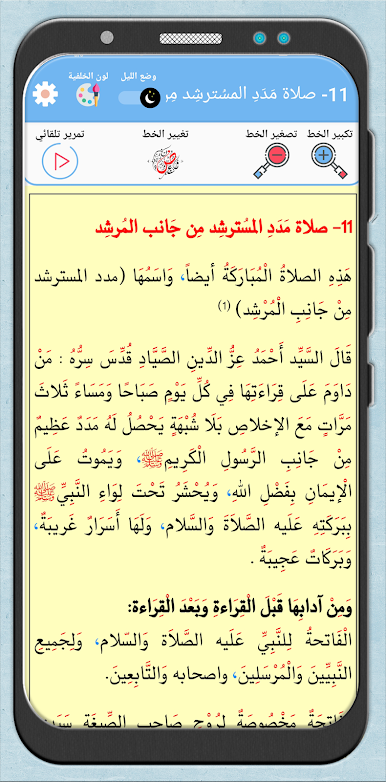 وضع الليل
لون الخلفية
11- صلاة مَدَدِ المسْترشِد مِن
تكبير الخط
تصغير الخط
تغيير الخط
تمرير تلقائي
11- صلاة مَدَدِ المسْترشِد مِن جَانب المُرشِد
هَذِهِ الصلاةُ الْمُبَارَكَةُ أيضاً، وَاسَمُهَا (مدد المسترشد
مِنْ جَانِبِ الْمُرْشِد) (1)
قَالَ السَّيِّد أَحْمَدُ عِزُّ الدِّينِ الصَّيَّادِ قُدِّسَ سِرُّهُ : مَنْ
دَاوَمَ عَلَى قِرَاءَتِهَا فِي كُلِّ يَوْمٍ صَبَاحًا وَمَسَاءً ثَلَاثَ
مَرَّاتٍ مَعَ الإخلاصِ بَلَا شُبْهَةٍ يَحْصُلُ لَهُ مَدَدٌ عَظِيمٌ
مِنْ جَانِبِ الرَّسُولِ الْكَرِيمِ ﷺ، وَيَمُوتُ عَلَى
الْإيمَانِ بِفَضْلِ اللهِ، وَيُحْشَرُ تَحْتَ لِوَاءِ النَّبِيِّ ﷺ
بِبَرَكَتِهِ عَلَيه الصَّلَاةَ وَالسَّلام، وَلَهَا أَسَرَارٌ غَريبَةٌ،
وَبَرَكَاتٌ عَجِيبَةٌ .
وَمِنْ آدابِهَا قَبْلَ الْقِرَاءةِ وَبَعْدَ الْقِرَاءة:
الْفَاتحةُ لِلنَّبِيِّ عَلَيه الصَّلَاَة وَالسّلام، وَلِجَمِيعِ
النَّبِيِّينَ وَالْمُرْسَلِينَ، واصحابه وَالتَّابِعِينَ.
الْفَاتحَةُ مَخْصُوصَةٌ لرُوْحِ صَاحِبِ الصِّيغَةِ